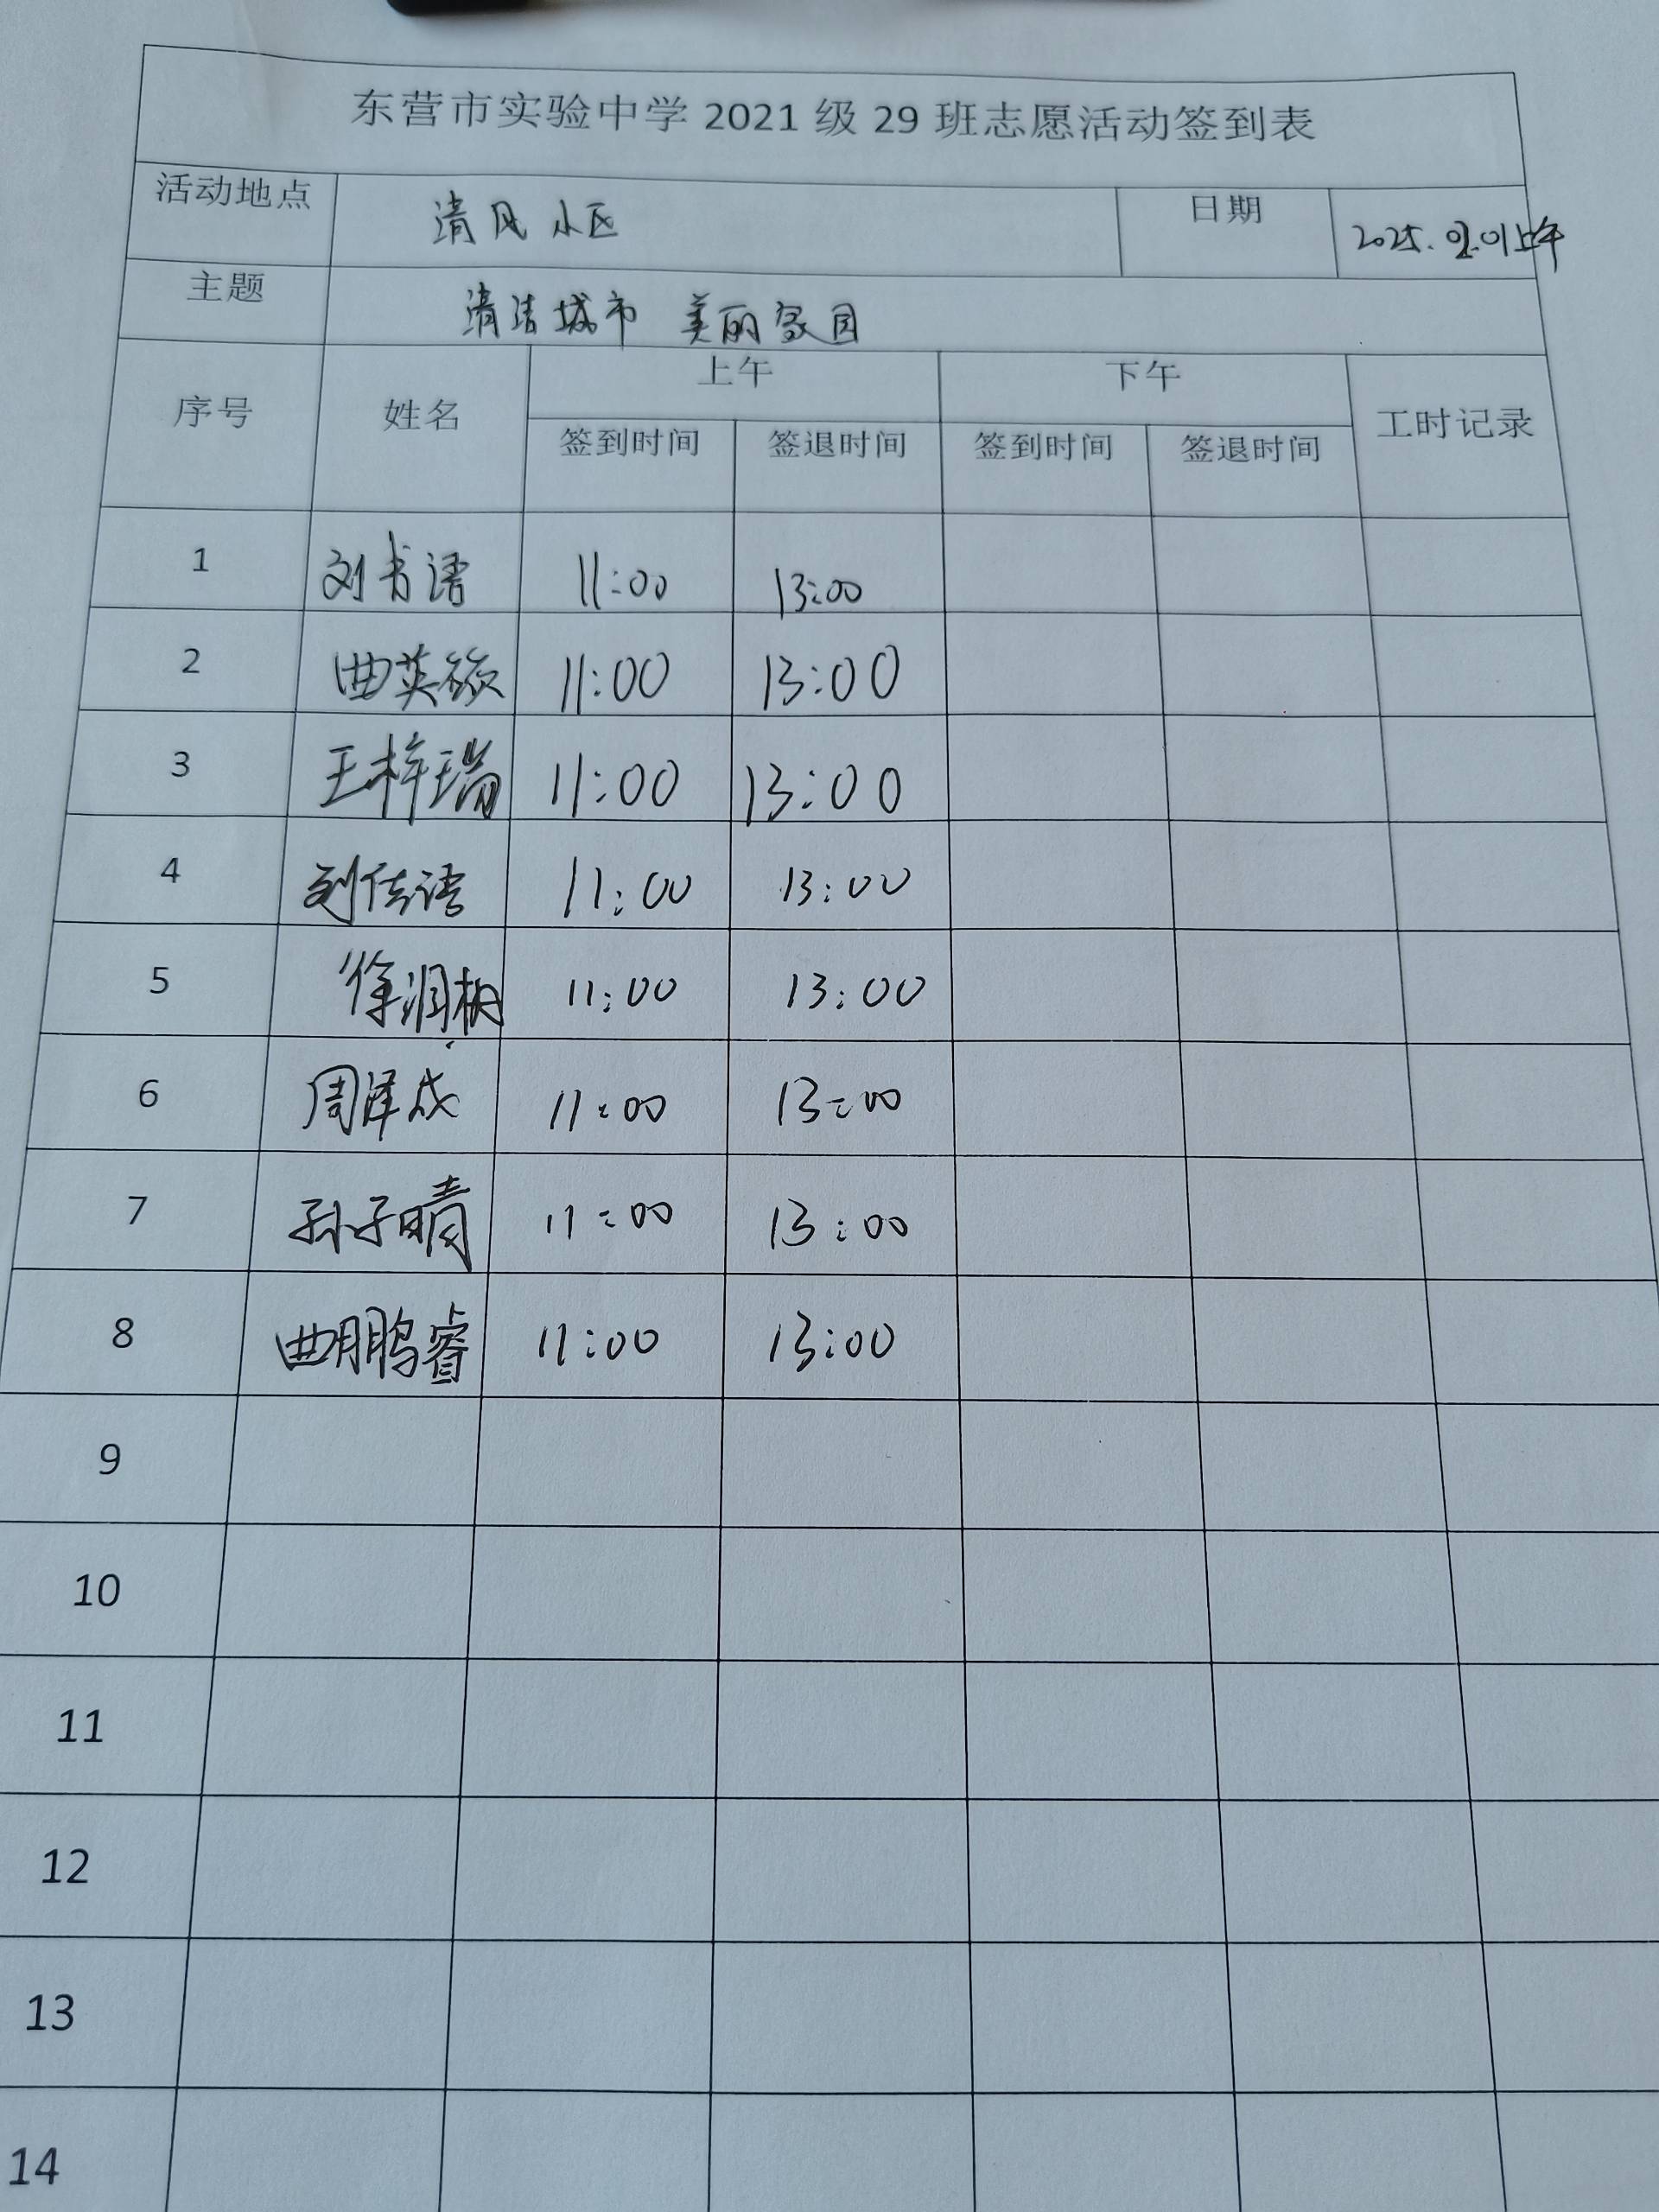 东营市实验中学 2021 级 29 班志愿活动签到表
活动地点 清风小区 日期 2025. 上午
主题 清洁城市 美丽家园
序号 姓名 上午 下午 工时记录
签到时间 签退时间 签到时间 签退时间
1 刘书语 11:00 13:00
2 曲英筱 11:00 13:00
3 王梓瑞 11:00 13:00
4 刘佳语 11:00 13:00
5 徐润桐 11:00 13:00
6 周泽成 11:00 13:00
7 孙子晴 11:00 13:00
8 曲鹏睿 11:00 13:00
9
10
11
12
13
14